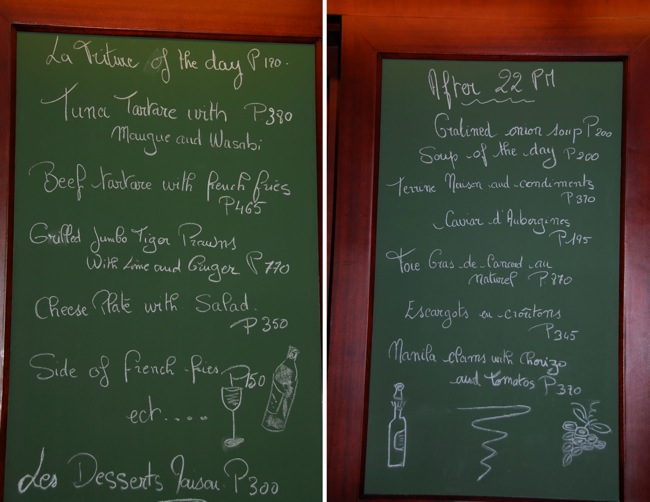 La Friture of the day P190.
Tuna Tartare with P380
Mangue and Wasabi
Beef tartare with french fries
P465
Grilled Jumbo Tiger Prawns
With Lime and Ginger P770
Cheese Plate with Salad.
P350
Side of french fries P150
ect....
Les Desserts Maison P300
After 22 PM
Gratined onion soup P200
Soup of the day P200
Terrine Maison and condiments
P370
Caviar d'Aubergines
P195
Foie Gras de Canard au
naturel P870
Escargots en croûtons
P345
Manila clams with Chorizo
and tomatos P370